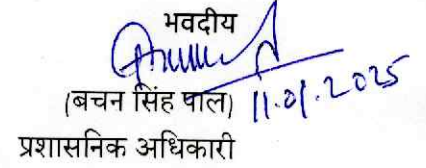 भवदीय
(बचन सिंह पाल) 11.01.2025
प्रशासनिक अधिकारी